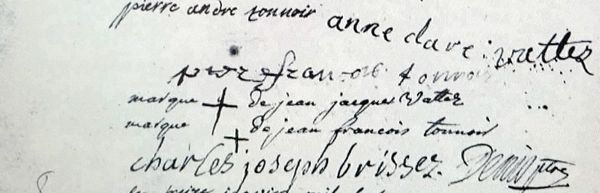 pierre andre tonnoir anne clare wattez
pierre francois tonnoir
marque de jean jacques Wattez
marque de jean francois tonnoir
charles joseph brissez Denis ptre